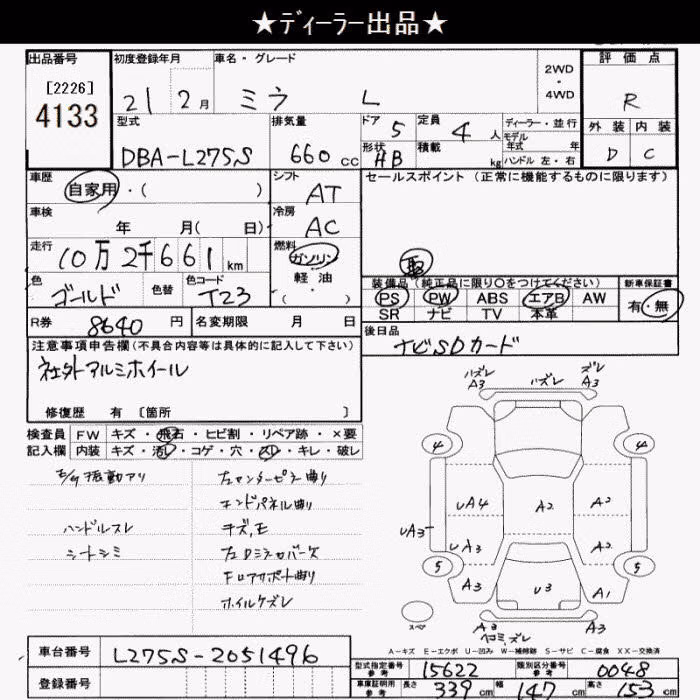 ★ディーラー出品★
出品番号
[2226]
4133
初度登録年月
21 2月
車名・グレード
ミラ L
2WD
・
4WD
評価点
R
外装 内装
D C
型式
DBA-L275S
排気量
660 cc
ドア 5
形状 HB
定員 4人
積載 kg
ディーラー・並行
モデル
年式 年
ハンドル 左・右
車歴
自家用・( )
シフト
AT
セールスポイント(正常に機能するものに限ります)
車検
年 月( 日)
冷房
AC
走行
10万2千661km
燃料
ガソリン
軽油
・( )
色
ゴールド
色替
色コード
T23
装備品(純正品に限り○をつけてください)
PS PW ABS エアB AW
SR ナビ TV 本革
新車保証書
有・無
R券 8640円
名変期限 月 日
後日品
ナビSDカード
注意事項申告欄(不具合内容等は具体的に記入して下さい)
社外アルミホイール
修復歴 有 〔箇所 〕
検査員
記入欄
FW キズ・飛石・ヒビ割・リペア跡・×要
内装 キズ・汚レ・コゲ・穴・スレ・キレ・破レ
E/g振動アリ
ハンドルスレ
シートシミ
左センターピラー曲り
エンドパネル曲り
キズ,E
ホイルケズレ
ハズレ
A3
ハズレ
ズレ
A3
4
4
UA4
A2
A2
UA3
UA3
A2
5
5
A3
U3
A1
スペア
A3
A3
ヘコミ,ズレ
A-キズ E-エクボ U-凹み W-補修跡 S-サビ C-腐食 XX-交換済
車台番号
L275S-2051496
登録番号
型式指定番号
参考
15622
類別区分番号
参考
0048
車庫証明用
参考
長さ 339cm 幅 147cm 高さ 153cm